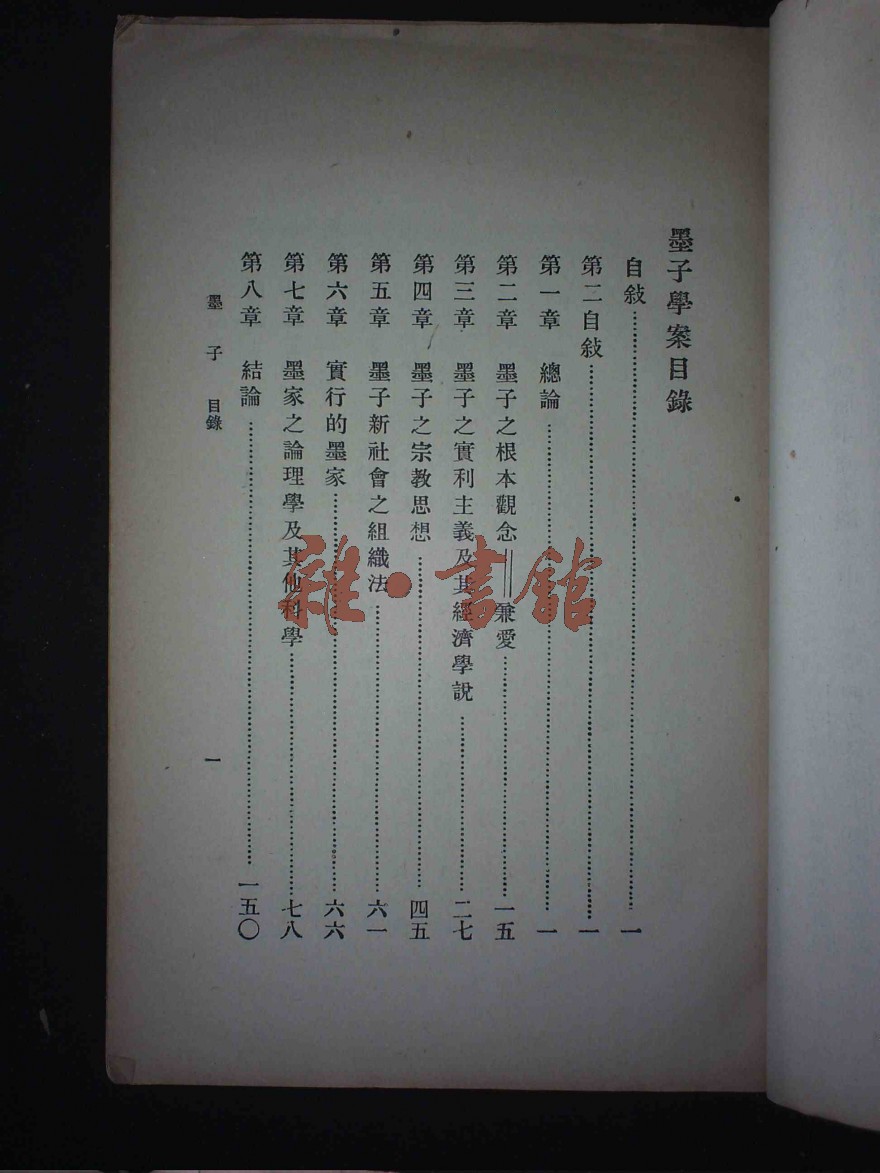 墨子學案目錄
自敍……一
第二自敍……一
第一章　總論……一
第二章　墨子之根本觀念——兼愛……一五
第三章　墨子之實利主義及其經濟學說……二七
第四章　墨子之宗教思想……四五
第五章　墨子新社會之組織法……六一
第六章　實行的墨家……六六
第七章　墨家之論理學及其他科學……七八
第八章　結論……一五〇
墨子　目錄　一
雜·書館